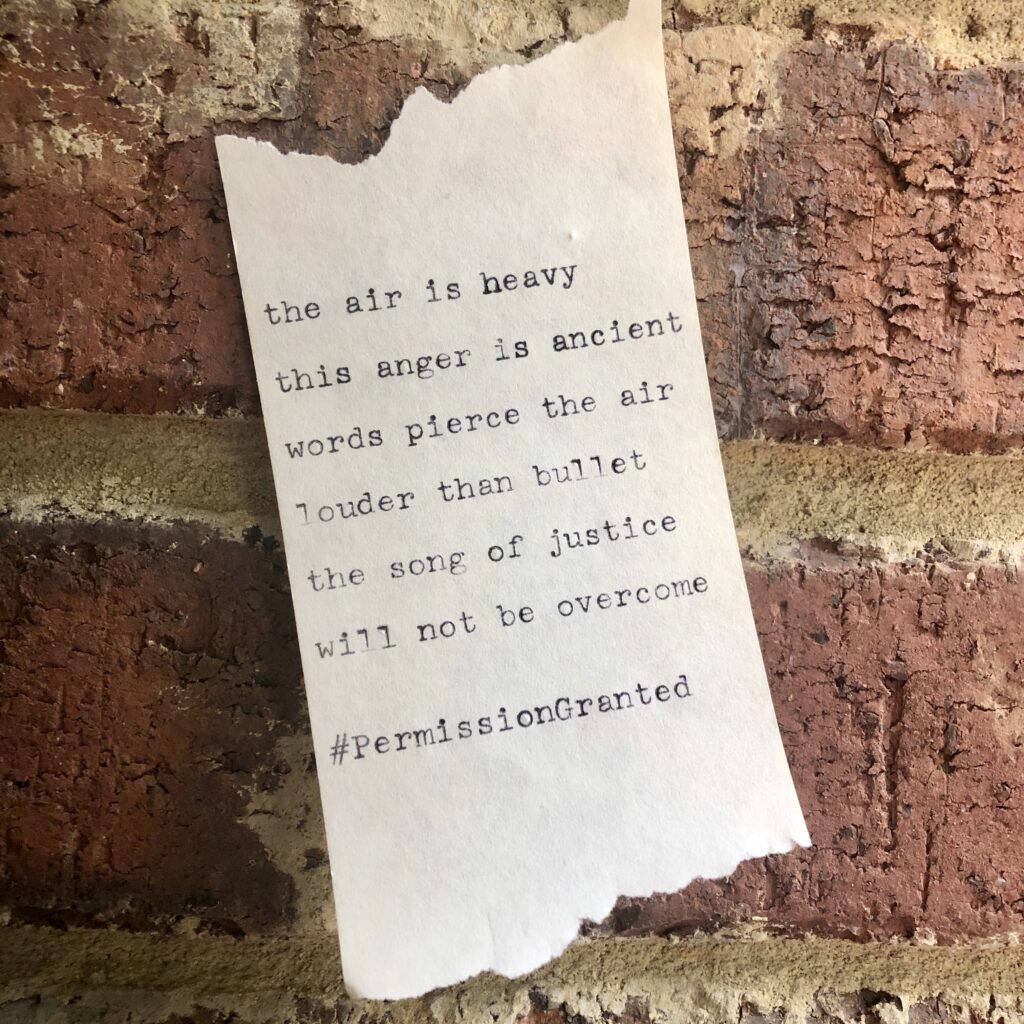 the air is heavy
this anger is ancient
words pierce the air
louder than bullet
the song of justice
will not be overcome
#PermissionGranted